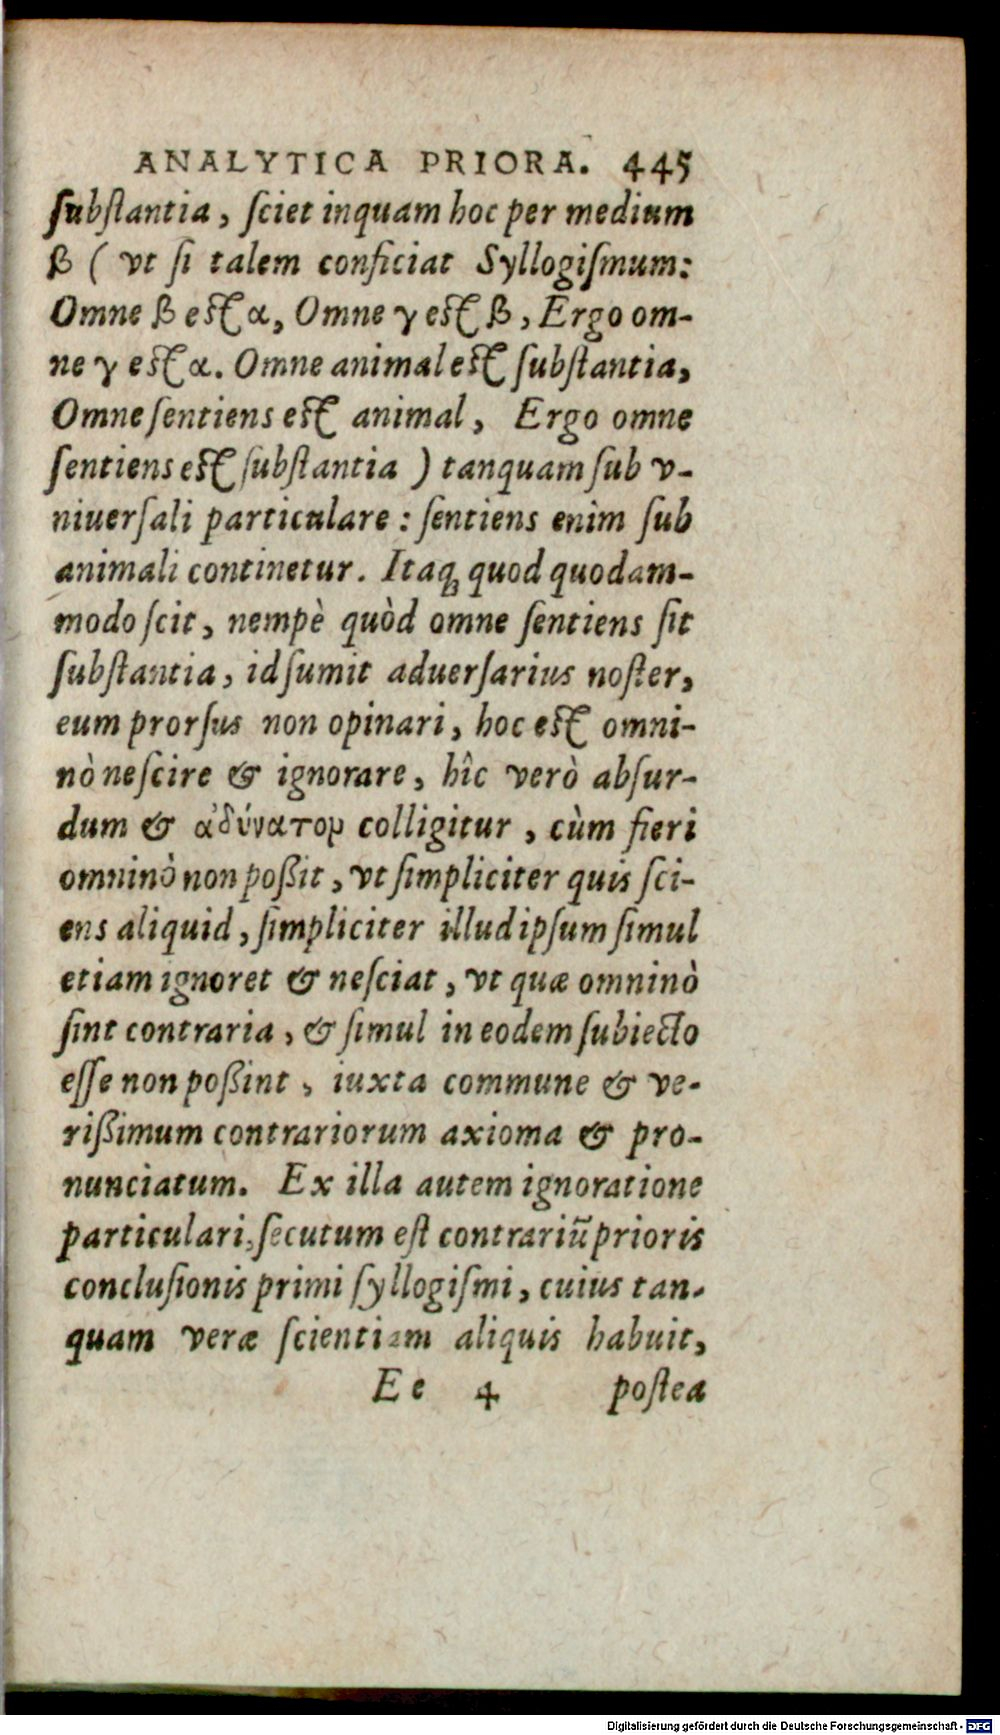 ANALYTICA PRIORA. 445
ſubſtantia, ſciet inquam hoc per medium
β ( vt ſi talem conficiat Syllogiſmum:
Omne β eſt α, Omne γ eſt β, Ergo om-
ne γ eſt α. Omne animal eſt ſubſtantia,
Omne ſentiens eſt animal, Ergo omne
ſentiens eſt ſubſtantia ) tanquam ſub v-
niuerſali particulare : ſentiens enim ſub
animali continetur. Itaq; quod quodam-
modo ſcit, nempè quòd omne ſentiens ſit
ſubſtantia, id ſumit aduerſarius noſter,
eum prorſus non opinari, hoc eſt omni-
nò neſcire & ignorare, hîc verò abſur-
dum & ἀδύνατον colligitur, cùm fieri
omninò non poßit, vt ſimpliciter quis ſci-
ens aliquid, ſimpliciter illud ipſum ſimul
etiam ignoret & neſciat, vt quæ omninò
ſint contraria, & ſimul in eodem ſubiecto
eſſe non poßint, iuxta commune & ve-
rißimum contrariorum axioma & pro-
nunciatum. Ex illa autem ignoratione
particulari, ſecutum eſt contrariũ prioris
concluſionis primi ſyllogiſmi, cuius tan-
quam veræ ſcientiam aliquis habuit,
Ee 4 poſtea
Digitalisierung gefördert durch die Deutsche Forschungsgemeinschaft - DFG